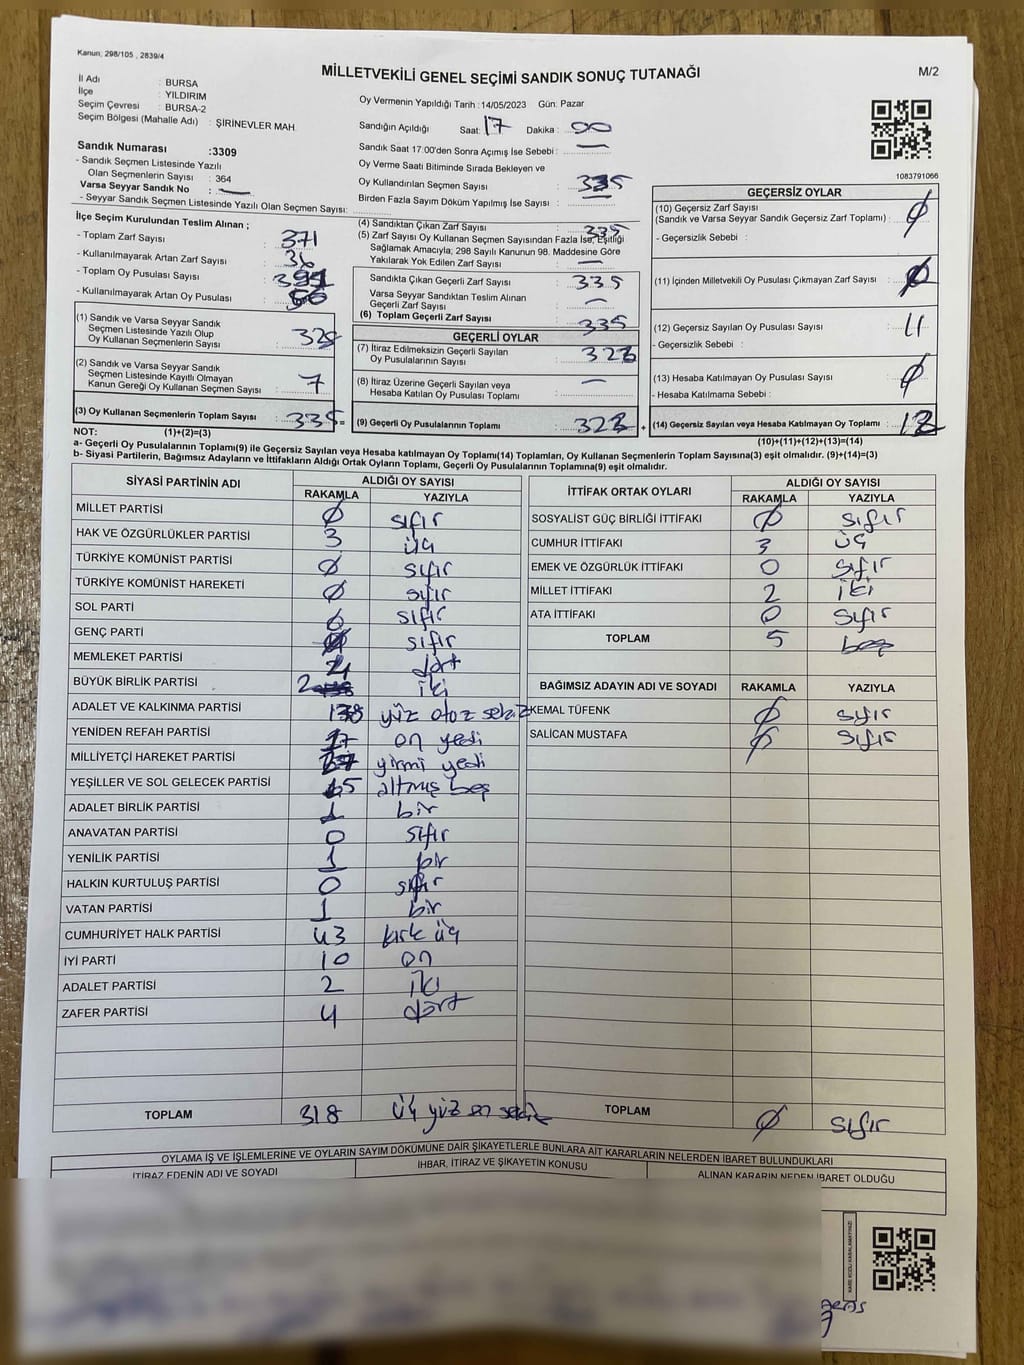 Kanun; 298/105 , 2839/4
MİLLETVEKİLİ GENEL SEÇİMİ SANDIK SONUÇ TUTANAĞI
M/2
İl Adı : BURSA
İlçe : YILDIRIM
Seçim Çevresi : BURSA-2
Seçim Bölgesi (Mahalle Adı) : ŞİRİNEVLER MAH.
Sandık Numarası :3309
- Sandık Seçmen Listesinde Yazılı
Olan Seçmenlerin Sayısı : 364
Varsa Seyyar Sandık No : —
- Seyyar Sandık Seçmen Listesinde Yazılı Olan Seçmen Sayısı:
Oy Vermenin Yapıldığı Tarih : 14/05/2023 Gün: Pazar
Sandığın Açıldığı Saat: 17 Dakika : 00
Sandık Saat 17:00'den Sonra Açımış İse Sebebi : —
Oy Verme Saati Bitiminde Sırada Bekleyen ve
Oy Kullandırılan Seçmen Sayısı : 335
Birden Fazla Sayım Döküm Yapılmış İse Sayısı : —
1083791066
İlçe Seçim Kurulundan Teslim Alınan ;
- Toplam Zarf Sayısı : 371
- Kullanılmayarak Artan Zarf Sayısı : 36
- Toplam Oy Pusulası Sayısı :
- Kullanılmayarak Artan Oy Pusulası :
(1) Sandık ve Varsa Seyyar Sandık
Seçmen Listesinde Yazılı Olup
Oy Kullanan Seçmenlerin Sayısı : 328
(2) Sandık ve Varsa Seyyar Sandık
Seçmen Listesinde Kayıtlı Olmayan
Kanun Gereği Oy Kullanan Seçmen Sayısı : 7
(3) Oy Kullanan Seçmenlerin Toplam Sayısı : 335 =
(4) Sandıktan Çıkan Zarf Sayısı : 335
(5) Zarf Sayısı Oy Kullanan Seçmen Sayısından Fazla İse, Eşitliği
Sağlamak Amacıyla; 298 Sayılı Kanunun 98. Maddesine Göre
Yakılarak Yok Edilen Zarf Sayısı : —
Sandıkta Çıkan Geçerli Zarf Sayısı : 335
Varsa Seyyar Sandıktan Teslim Alınan
Geçerli Zarf Sayısı : —
(6) Toplam Geçerli Zarf Sayısı : 335
GEÇERLİ OYLAR
(7) İtiraz Edilmeksizin Geçerli Sayılan
Oy Pusulalarının Sayısı : 323
(8) İtiraz Üzerine Geçerli Sayılan veya
Hesaba Katılan Oy Pusulası Toplamı : —
(9) Geçerli Oy Pusulalarının Toplamı : 323 +
GEÇERSİZ OYLAR
(10) Geçersiz Zarf Sayısı
(Sandık ve Varsa Seyyar Sandık Geçersiz Zarf Toplamı) : Ø
- Geçersizlik Sebebi :
(11) İçinden Milletvekili Oy Pusulası Çıkmayan Zarf Sayısı : Ø
(12) Geçersiz Sayılan Oy Pusulası Sayısı : 11
- Geçersizlik Sebebi :
(13) Hesaba Katılmayan Oy Pusulası Sayısı : Ø
- Hesaba Katılmama Sebebi :
(14) Geçersiz Sayılan veya Hesaba Katılmayan Oy Toplamı : 12
NOT: (1)+(2)=(3)
(10)+(11)+(12)+(13)=(14)
a- Geçerli Oy Pusulalarının Toplamı(9) ile Geçersiz Sayılan veya Hesaba katılmayan Oy Toplamı(14) Toplamları, Oy Kullanan Seçmenlerin Toplam Sayısına(3) eşit olmalıdır. (9)+(14)=(3)
b- Siyasi Partilerin, Bağımsız Adayların ve İttifakların Aldığı Ortak Oyların Toplamı, Geçerli Oy Pusulalarının Toplamına(9) eşit olmalıdır.
SİYASİ PARTİNİN ADI ALDIĞI OY SAYISI
RAKAMLA YAZIYLA
MİLLET PARTİSİ Ø sıfır
HAK VE ÖZGÜRLÜKLER PARTİSİ 3 üç
TÜRKİYE KOMÜNİST PARTİSİ Ø sıfır
TÜRKİYE KOMÜNİST HAREKETİ Ø sıfır
SOL PARTİ sıfır
GENÇ PARTİ sıfır
MEMLEKET PARTİSİ 4 dört
BÜYÜK BİRLİK PARTİSİ 2 iki
ADALET VE KALKINMA PARTİSİ 138 yüz otoz sekiz
YENİDEN REFAH PARTİSİ 17 on yedi
MİLLİYETÇİ HAREKET PARTİSİ 27 yirmi yedi
YEŞİLLER VE SOL GELECEK PARTİSİ 65 altmış beş
ADALET BİRLİK PARTİSİ 1 bir
ANAVATAN PARTİSİ 0 sıfır
YENİLİK PARTİSİ 1 bir
HALKIN KURTULUŞ PARTİSİ 0 sıfır
VATAN PARTİSİ 1 bir
CUMHURİYET HALK PARTİSİ 43 kırk üç
İYİ PARTİ 10 on
ADALET PARTİSİ 2 iki
ZAFER PARTİSİ 4 dört
TOPLAM 318 üç yüz on sekiz
İTTİFAK ORTAK OYLARI ALDIĞI OY SAYISI
RAKAMLA YAZIYLA
SOSYALİST GÜÇ BİRLİĞİ İTTİFAKI Ø sıfır
CUMHUR İTTİFAKI 3 üç
EMEK VE ÖZGÜRLÜK İTTİFAKI 0 sıfır
MİLLET İTTİFAKI 2 iki
ATA İTTİFAKI 0 sıfır
TOPLAM 5 beş
BAĞIMSIZ ADAYIN ADI VE SOYADI RAKAMLA YAZIYLA
KEMAL TÜFENK Ø sıfır
SALİCAN MUSTAFA Ø sıfır
TOPLAM Ø sıfır
OYLAMA İŞ VE İŞLEMLERİNE VE OYLARIN SAYIM DÖKÜMÜNE DAİR ŞİKAYETLERLE BUNLARA AİT KARARLARIN NELERDEN İBARET BULUNDUKLARI
İTİRAZ EDENİN ADI VE SOYADI İHBAR, İTİRAZ VE ŞİKAYETİN KONUSU ALINAN KARARIN NEDEN İBARET OLDUĞU
KARE KODU KARALAMAYINIZ!